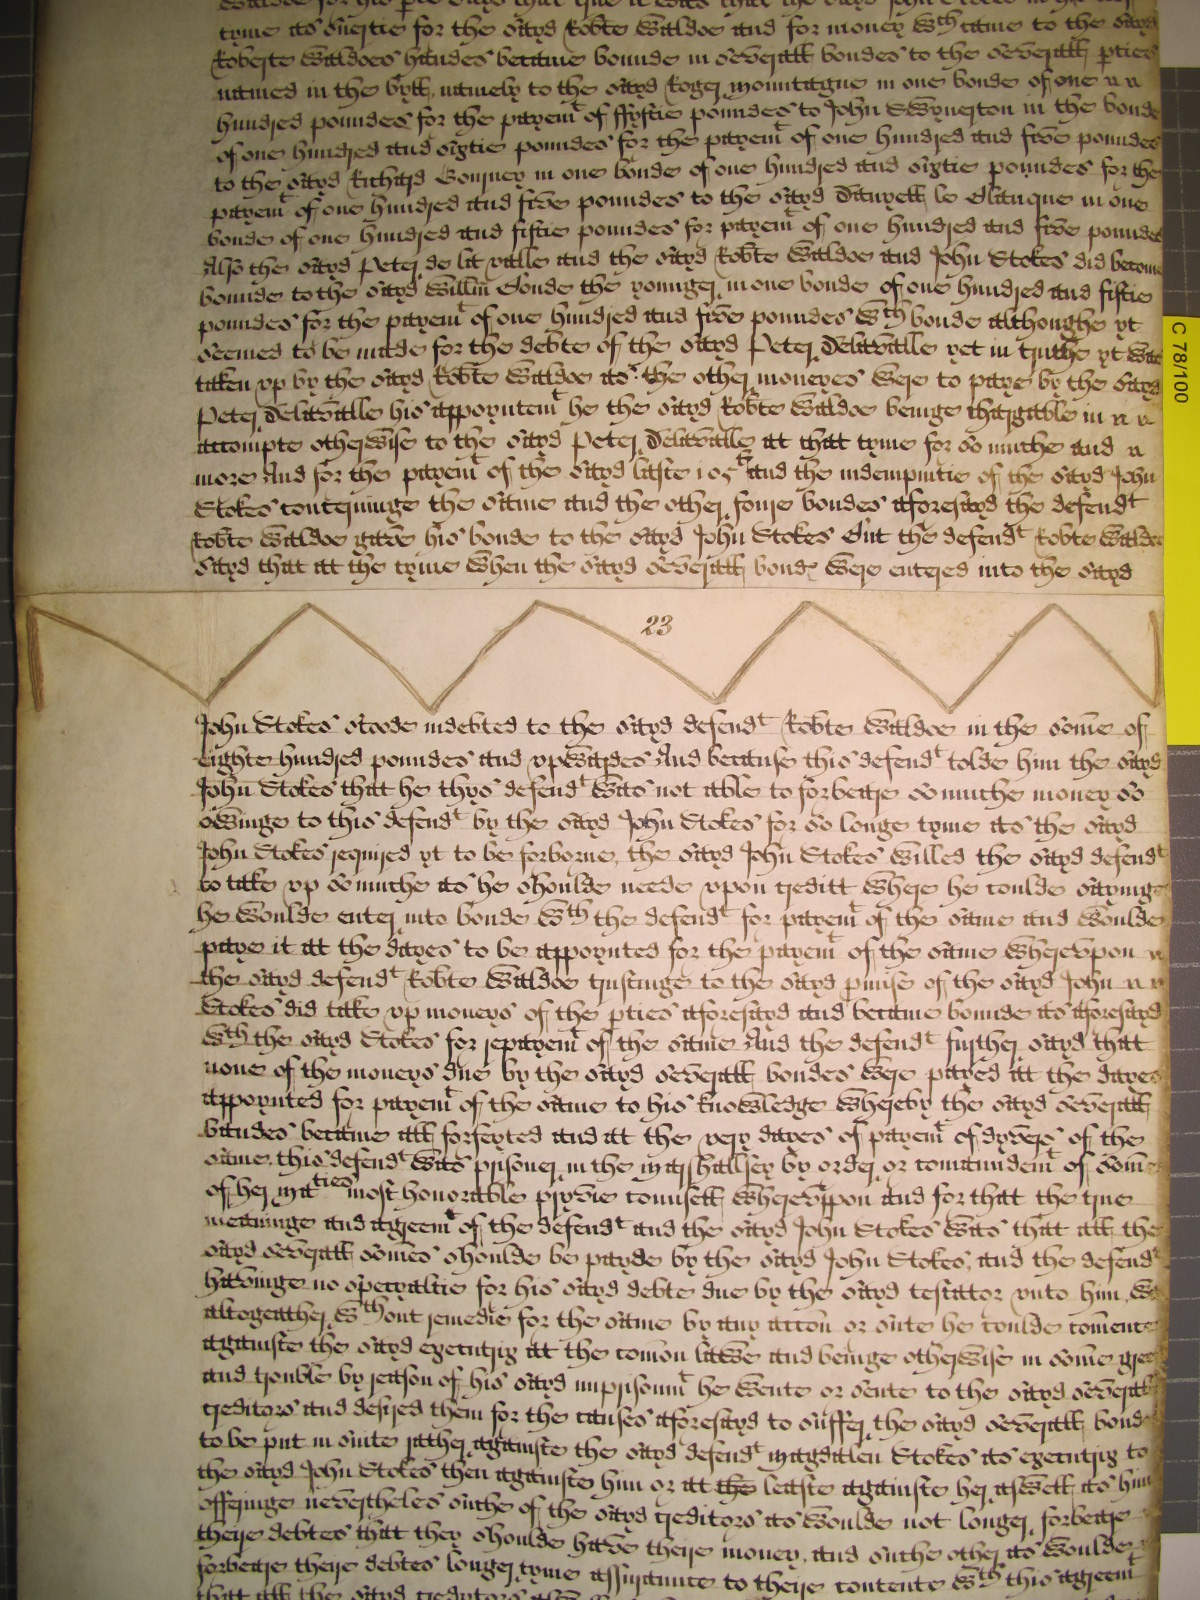 tyme as suertie for the sayd Robte Waldoe and for money wch came to the sayd
Roberte Waldoes handes became bounde in severall bondes to the severall pties
named in the byll, namely to the sayd Roger Mountague in one bonde of one
hundred poundes for the payemt of ffyftie poundes to John Swynerton in the bonde
of one hundred and sixtie poundes for the payemt of one hundred and five poundes
to the sayd Richard Gourney in one bonde of one hundred and sixtie poundes for the
payemt of one hundred and five poundes to the sayd Danyell le Blanque in one
bonde of one hundred and fiftie poundes for payemt of one hundred and five poundes
Also the sayd Peter de la valle and the sayd Robte Waldoe and John Stokes did become
bounde to the sayd Willm Bonde the younger in one bonde of one hundred and fiftie
poundes for the payemt of one hundred and five poundes wch bonde althoughe yt
seemed to be made for the debte of the sayd Peter Delavalle yet in truthe yt was
taken up by the sayd Robte Waldoe as the other moneyes were to paye by the sayd
Peter Delavalle his appoyntemt he the sayd Robte Waldoe beinge chargable in
accompte otherwise to the sayd Peter Delavalle at that tyme for so muche and
more And for the payemt of the sayd laste 105li and the indempnitie of the sayd John
Stokes concerninge the same and the other foure bondes aforesayd the defendt
Robte Waldoe gave his bonde to the sayd John Stokes But the defendt Robte Waldoe
sayd that at the tyme when the sayd severall bonds were entered into the sayd
23
John Stokes stoode indebted to the sayd defendt Robte Waldoe in the some of
eighte hundred poundes and upwardes And because this defendt tolde him the sayd
John Stokes that he thys defendt was not able to forbeare so muche money so
owinge to this defendt by the sayd John Stokes for so longe tyme as the sayd
John Stokes required yt to be forborne, the sayd John Stokes willed the sayd defendt
to take up so muche as he shoulde neede upon creditt where he coulde sayinge
he woulde enter into bonde wth the defendt for payemt of the same and woulde
paye it at the dayes to be appoynted for the payemt of the same Wherevpon
the sayd defendt Robte Waldoe trustinge to the sayd pmise of the sayd John
Stokes did take up moneys of the pties aforesayd and became bounde as aforesayd
wth the sayd Stokes for repayemt of the same And the defendt further sayd that
none of the moneys due by the sayd severall bondes were payed at the dayes
appoynted for payemt of the same to his knowledge Whereby the sayd severall
bandes became all forfeyted and at the very dayes of payemt of dyvers of the
same this defendt was prisoner in the Marshallsey by order or comaundemt of some
of her maties most honorable pryvie counsell Wherevppon and for that the true
meaninge and agreemt of the defendt and the sayd John Stokes was that all the
sayd severall somes shoulde be payde by the sayd John Stokes, and the defendt
havinge no specyaltie for his sayd debte due by the sayd testator vnto him, was
altogeather wthout remedie for the same by any accon or suite he coulde comence
againste the sayd executrix at the comon lawe and beinge otherwise in some greef
and trouble by reason of his sayd imprisonmt he wente or sente to the sayd severall
creditors and desired them for the causes aforesayd to suffer the sayd severall bonds
to be put in suite rather againste the sayd defendt Magdalen Stokes as executrix to
the sayd John Stokes then againste him or at the leaste againste her aswell as him
offeringe nevertheles suche of the sayd creditors as woulde not longer forbeare
theire debtes that they shoulde have theire money, and suche other as woulde
forbeare theire debtes longer tyme assuraunce to theire contente wth this agreemt
that all the sayd creditors